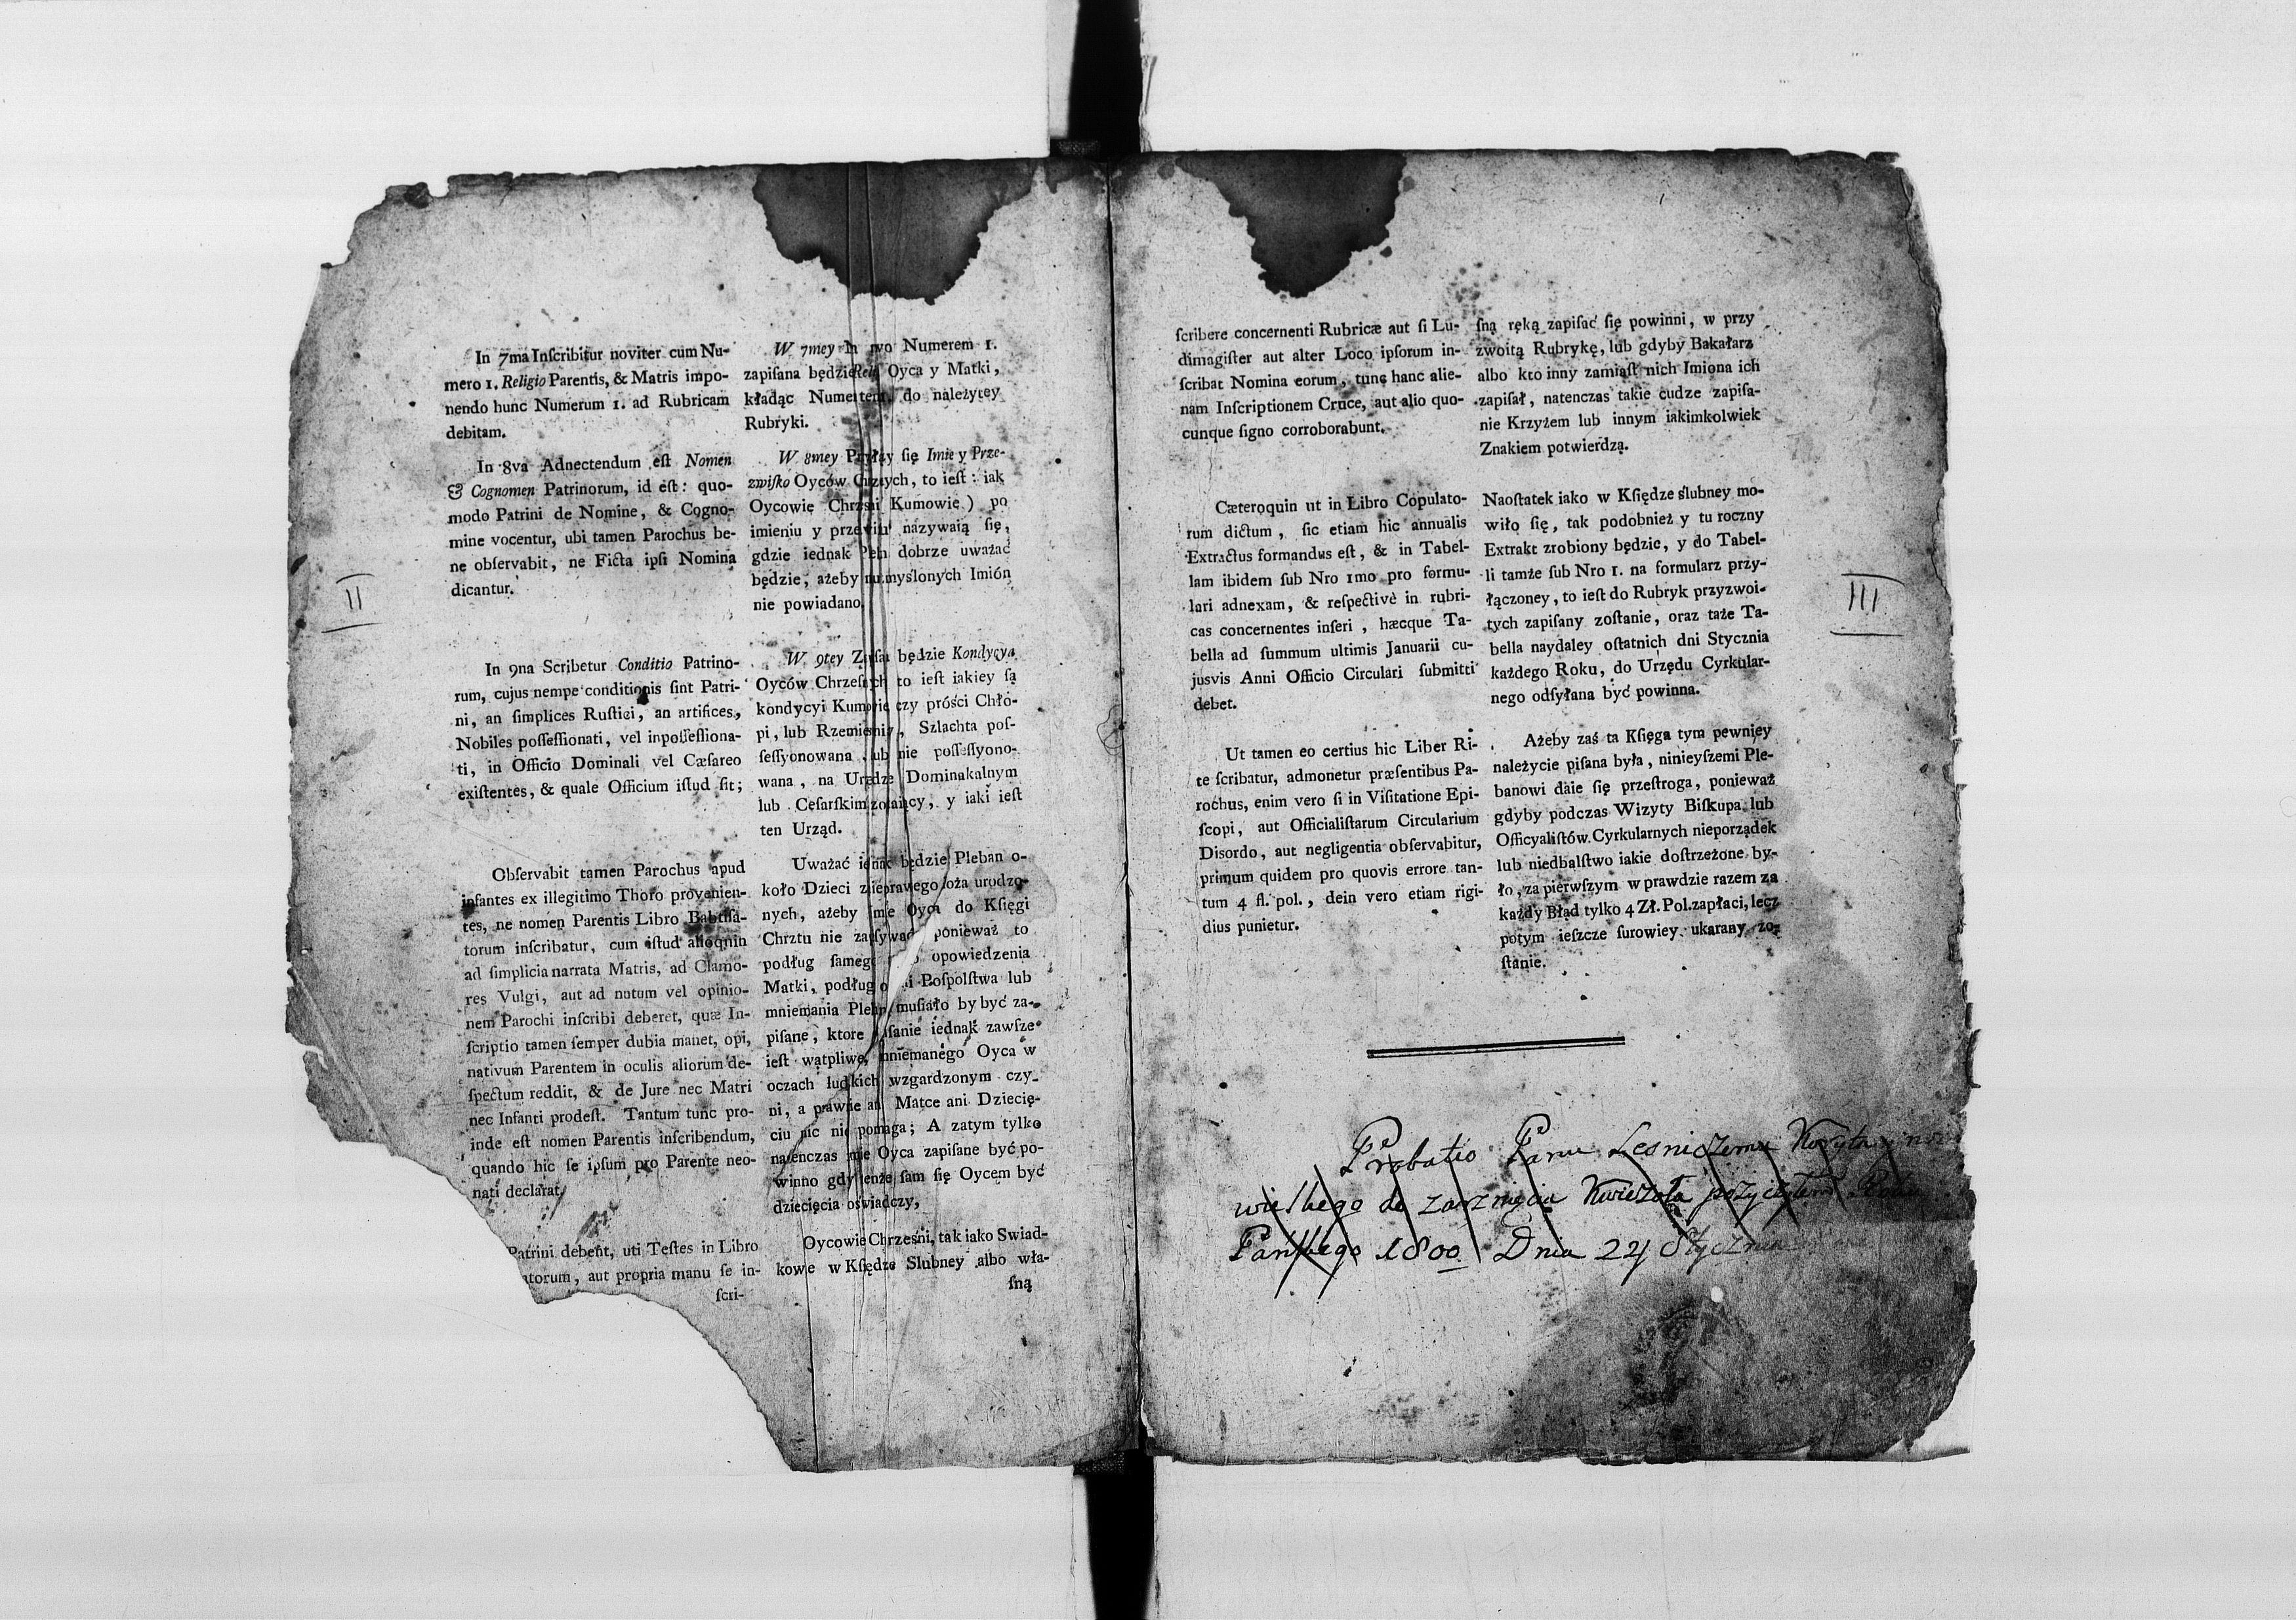 In 7ma Inſcribitur noviter cum Nu-
mero 1. Religio Parentis, & Matris impo-
nendo hunc Numerum 1. ad Rubricam
debitam.
In 8va Adnectendum eſt Nomen
& Cognomen Patrinorum, id eſt: quo-
modo Patrini de Nomine, & Cogno-
mine vocentur, ubi tamen Parochus be-
ne obſervabit, ne Ficta ipſi Nomina
dicantur.
In 9na Scribetur Conditio Patrino-
rum, cujus nempe conditionis ſint Patri-
ni, an ſimplices Ruſtici, an artifices,
Nobiles poſſeſſionati, vel inpoſſeſſiona-
ti, in Officio Dominali vel Cæſareo
exiſtentes, & quale Officium iſtud ſit;
Obſervabit tamen Parochus apud
infantes ex illegitimo Thoro provenien-
tes, ne nomen Parentis Libro Babtiſa-
torum inſcribatur, cum iſtud alioquin
ad ſimplicia narrata Matris, ad Clamo-
res Vulgi, aut ad nutum vel opinio-
nem Parochi inſcribi deberet, quæ In-
ſcriptio tamen ſemper dubia manet, opi,
nativum Parentem in oculis aliorum de-
ſpectum reddit, & de Jure nec Matri
nec Infanti prodeſt. Tantum tunc pro-
inde eſt nomen Parentis inſcribendum,
quando hic ſe ipſum pro Parente neo-
nati declarat.
Patrini debent, uti Teſtes in Libro
atorum, aut propria manu ſe in-
ſcri-
W 7mey Numerem 1.
zapiſana Oyca y Matki,
kładąc do należytey
Rubryki.
W 8mey ſię Imie y Prze-
zwiſko Oyców to ieſt: iak
Oycowie Kumowie) po
imieniu y nazywaią ſię,
gdzie iednak dobrze uważać
będzie, ażeby myślonych Imión
nie powiadano.
W 9tey będzie Kondycya
Oyców to ieſt iakiey ſą
kondycyi czy próści Chło-
pi, lub Szlachta poſ-
ſeſſyonowana lub nie poſſeſſyono-
wana, na Dominakalnym
lub y iaki ieſt
ten Urząd.
Uważać będzie Pleban o-
koło Dzieci łoża urodzo-
nych, ażeby Oyca do Kſięgi
Chrztu nie ponieważ to
podług opowiedzenia
Matki, podług Poſpolſtwa lub
mniemania muſiało by być za-
piſane, ktore iednak zawſze
ieſt wątpliwe, mniemanego Oyca w
oczach wzgardzonym czy-
ni, a Matce ani Dziecię-
ciu nic nie pomaga; A zatym tylko
natenczas Oyca zapiſane być po-
winno gdy ſam ſię Oycem być
dziecięcia oświadczy,
Oycowie Chrzeſni, tak iako Swiad-
kowe w Kſiędze Slubney albo wła-
ſną
ſcribere concernenti Rubricæ aut ſi Lu-
dimagiſter aut alter Loco ipſorum in-
ſcribat Nomina eorum, tunc hanc alie-
nam Inſcriptionem Cruce, aut alio quo-
cunque ſigno corroborabunt.
Cæteroquin ut in Libro Copulato-
rum dictum, ſic etiam hic annualis
Extractus formandus eſt, & in Tabel-
lam ibidem ſub Nro 1mo pro formu-
lari adnexam, & reſpectivè in rubri-
cas concernentes inſeri, hæcque Ta-
bella ad ſummum ultimis Januarii cu-
jusvis Anni Officio Circulari ſubmitti
debet.
Ut tamen eo certius hic Liber Ri-
te ſcribatur, admonetur præſentibus Pa-
rochus, enim vero ſi in Viſitatione Epi-
ſcopi, aut Officialiſtarum Circularium
Disordo, aut negligentia obſervabitur,
primum quidem pro quovis errore tan-
tum 4 fl. pol., dein vero etiam rigi-
dius punietur.
ſną ręką zapiſać ſię powinni, w przy
zwoitą Rubrykę, lub gdyby Bakałarz
albo kto inny zamiaſt nich Imiona ich
zapiſał, natenczas takie cudze zapiſa-
nie Krzyżem lub innym iakimkolwiek
Znakiem potwierdzą.
Naoſtatek iako w Kſiędze ślubney mo-
wiło ſię, tak podobnież y tu roczny
Extrakt zrobiony będzie, y do Tabel-
li tamże ſub Nro 1. na formularz przy-
łączoney, to ieſt do Rubryk przyzwoi-
tych zapiſany zoſtanie, oraz taże Ta-
bella naydaley oſtatnich dni Stycznia
każdego Roku, do Urzędu Cyrkular-
nego odſyłana być powinna.
Ażeby zaś ta Kſięga tym pewniey
należycie piſana była, ninieyſzemi Ple-
banowi daie ſię przeſtroga, ponieważ
gdyby podczas Wizyty Biſkupa lub
Officyaliſtów Cyrkularnych nieporządek
lub niedbalſtwo iakie doſtrzeżone by-
ło, za pierwſzym w prawdzie razem za
każdy Błąd tylko 4 Zł. Pol. zapłaci, lecz
potym ieſzcze ſurowiey ukarany zo-
ſtanie.
Probatio Panu Lesniczemu
do zarznięcia pożyczyłem
Pańskiego 1800 Dnia 24 Stycznia
II
III